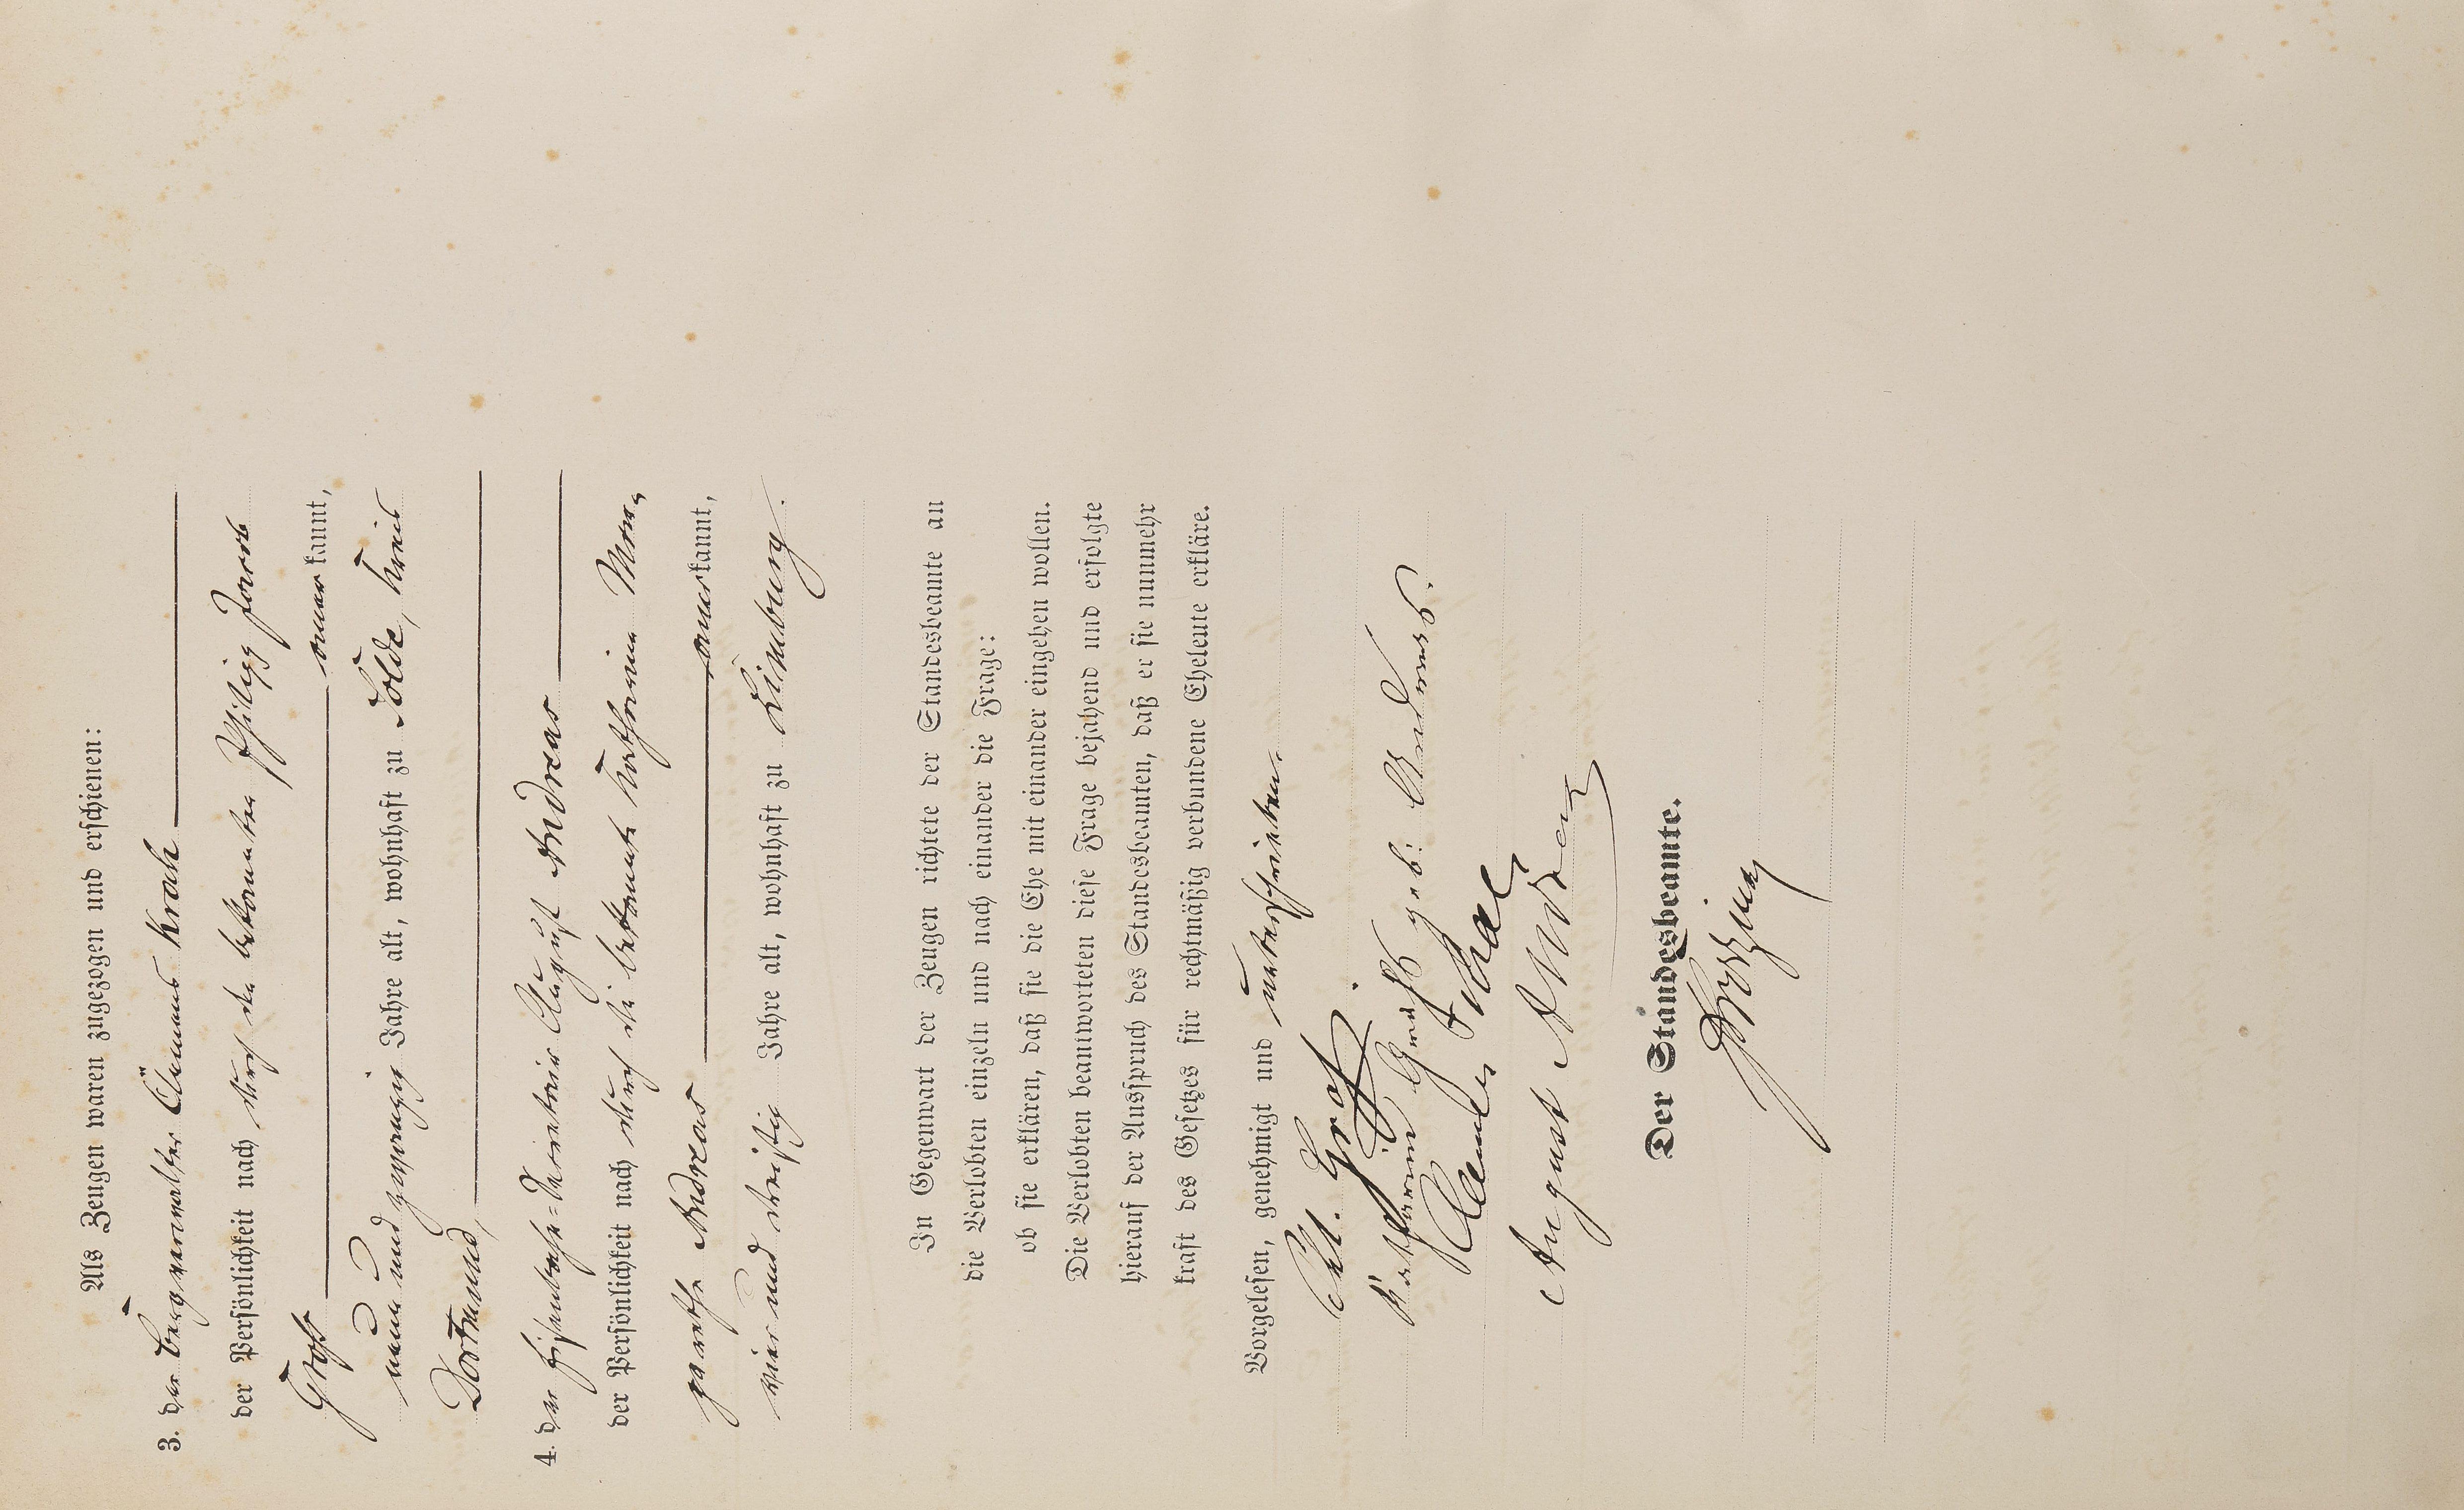 Als Zeugen waren zugezogen und erschienen:
3. der Bergverwalter Clemens Krah
der Persönlichkeit nach durch den bekannten Philipp Jacob
Graf anerkannt,
neun und zwanzig Jahre alt, wohnhaft zu Sölde, Kreis
Dortmund,
4. der Eisenbahn-Secretair August Andreas
der Persönlichkeit nach durch die bekannte Katharina Mar-
garetha Andreas anerkannt,
vier und dreißig Jahre alt, wohnhaft zu Limburg.
In Gegenwart der Zeugen richtete der Standesbeamte an
die Verlobten einzeln und nach einander die Frage:
ob sie erklären, daß sie die Ehe mit einander eingehen wollen.
Die Verlobten beantworteten diese Frage bejahend und erfolgte
hierauf der Ausspruch des Standesbeamten, daß er sie nunmehr
kraft des Gesetzes für rechtmäßig verbundene Eheleute erkläre.
Vorgelesen, genehmigt und unterschrieben.
Graf
Katharina Graf geb: Andreas.
Clemens
August Andreas
Der Standesbeamte.